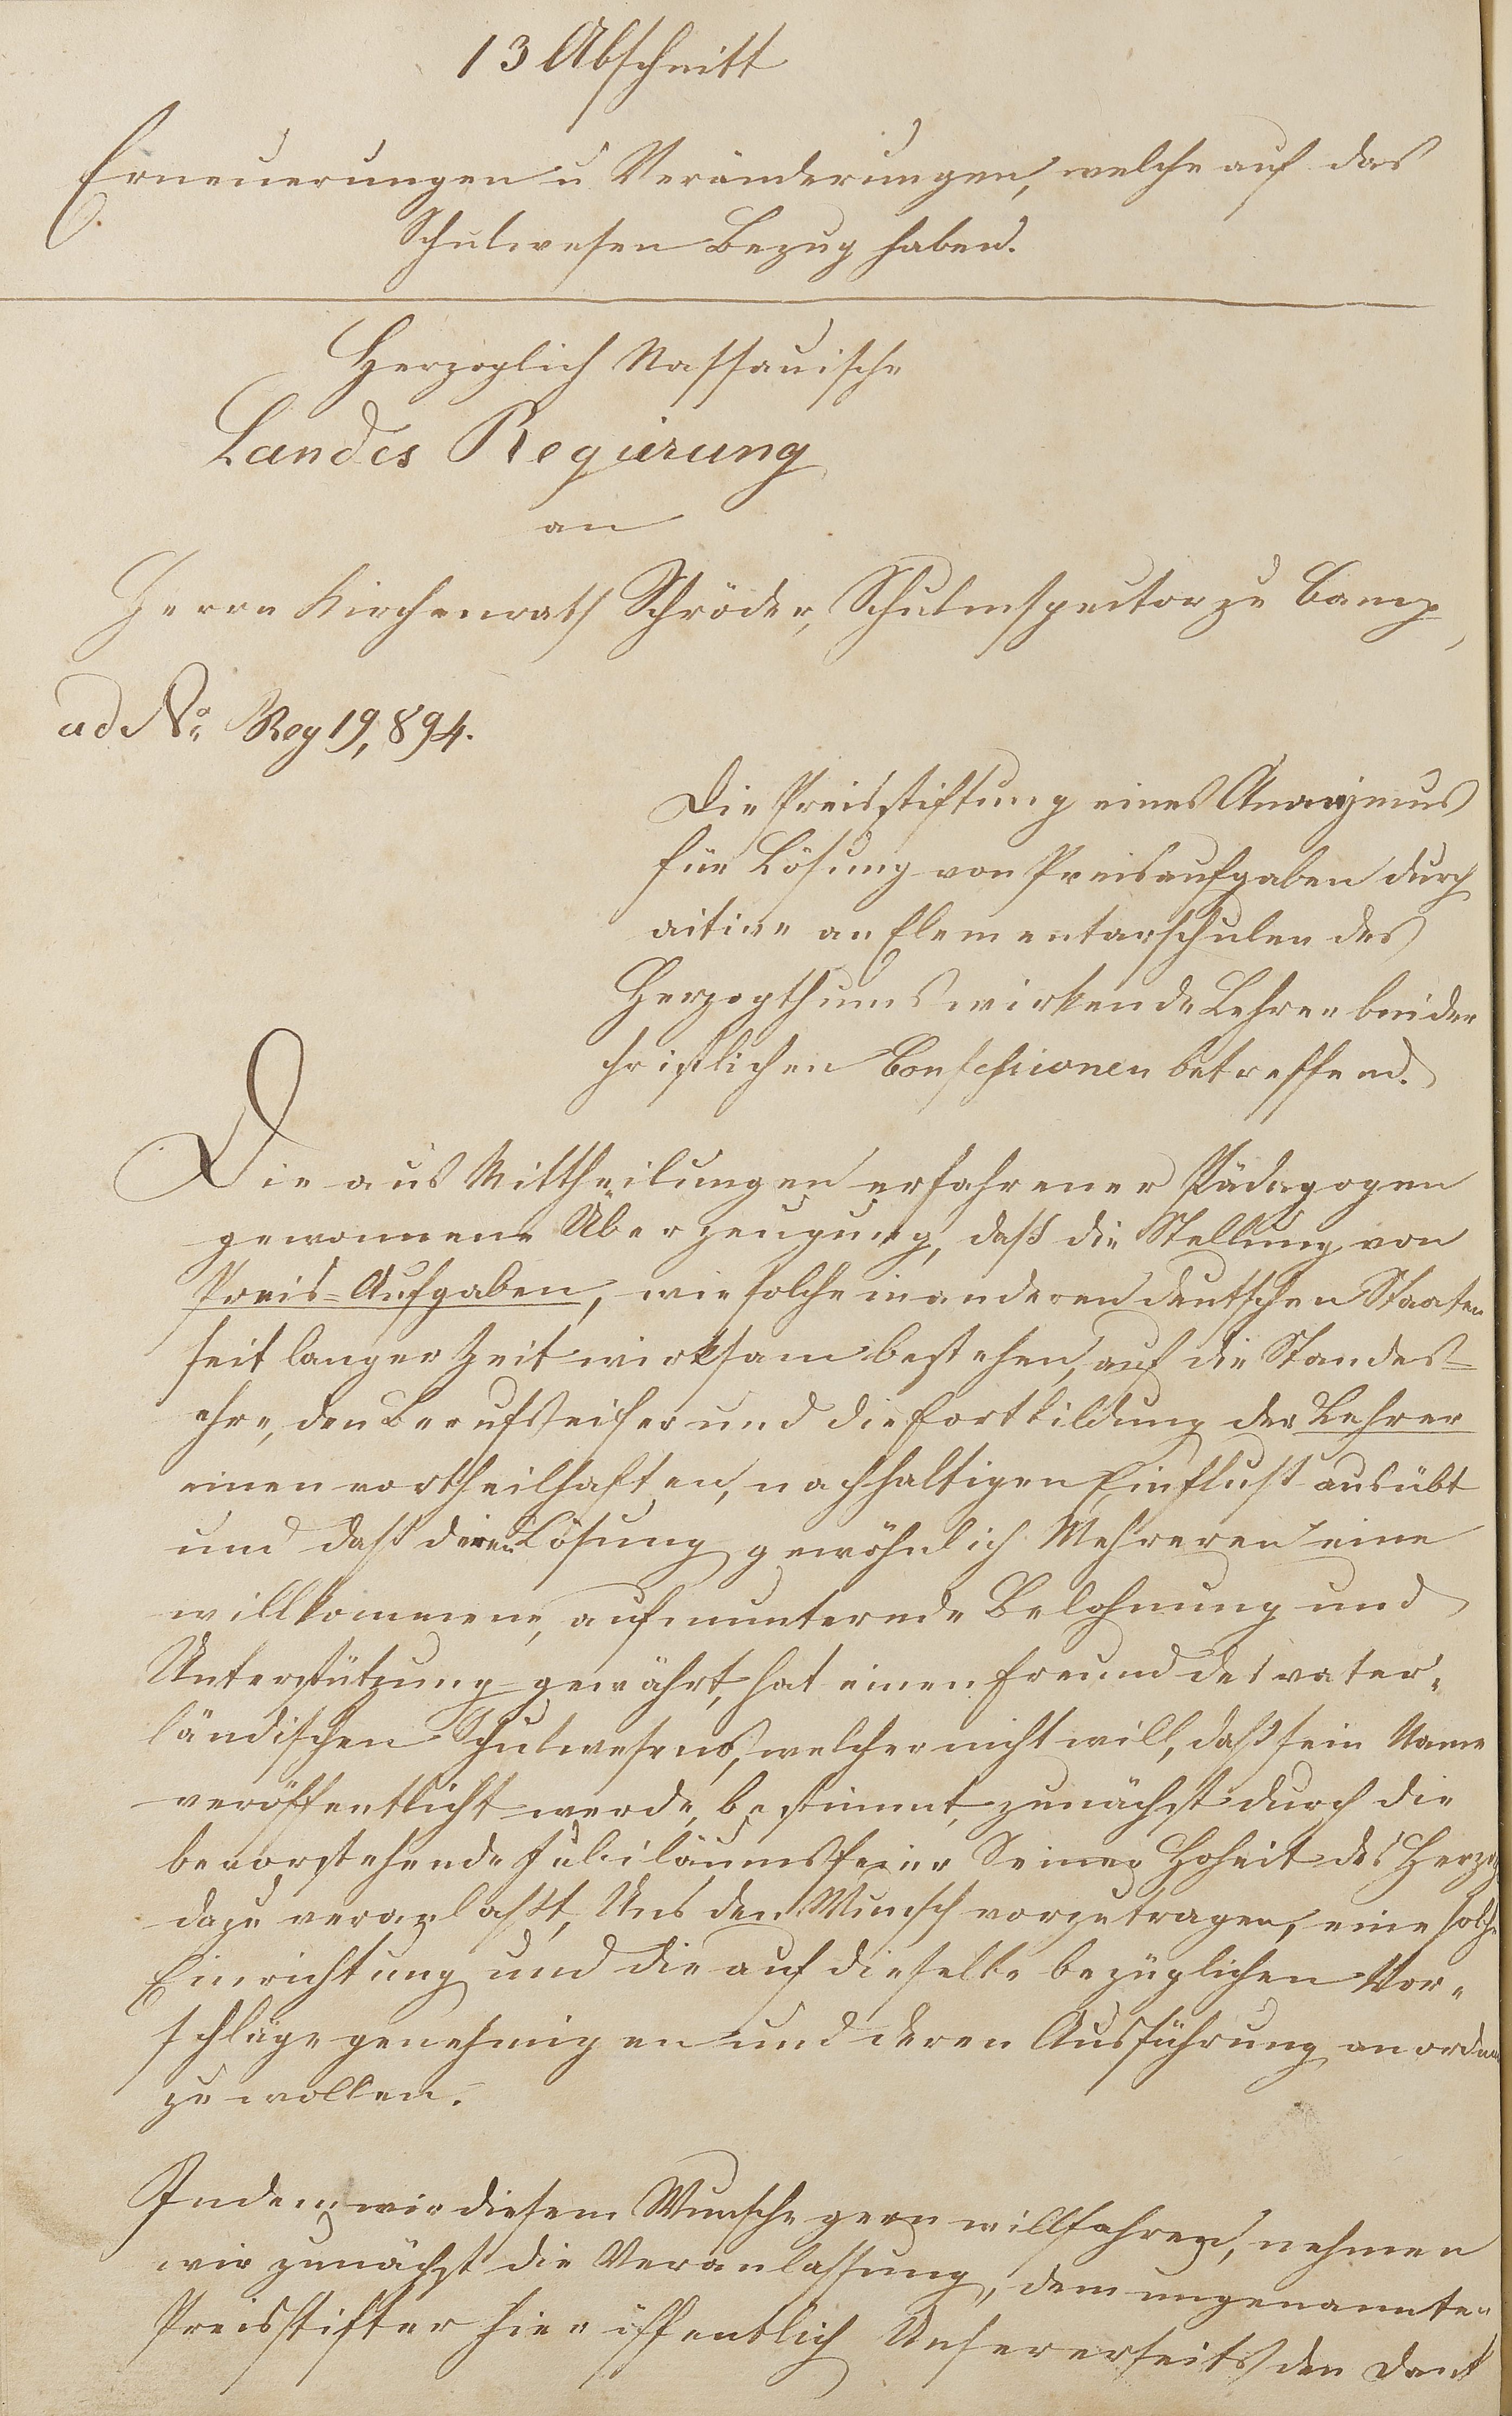 13 Abschnitt
Erneuerungen u Veränderungen, welche auf das
Schulwesen Bezug haben.
Herzoglich Nassauische
Landes Regierung
an
Herrn Kirchenrath Schröder, Schulinspector zu Camp,
ad No. Reg 19,894.
Die Preisstiftung eines Anonymus
für Lösung von Preisaufgaben durch
active an Elementarschulen des
Herzogthums wirkende Lehrer beider
christlichen Confessionen betreffend.
Die aus Mittheilungen erfahrener Pädagogen
gewonnene Überzeugung, daß die Stellung von
Preis-Aufgaben, wie solche in anderen deutschen Staaten
seit langer Zeit wirksam bestehen, auf die Standes-
ehre, den Berufseifer und die Fortbildung der Lehrer
einen vortheilhaften, nachhaltigen Einfluß ausübt
und daß deren Lösung gewöhnlich Mehreren eine
willkommene, aufmunternde Belohnung und
Unterstützung gewährt, hat einen Freund des vater-
ländischen Schulwesens, welcher nicht will, daß sein Name
veröffentlicht werde, bestimmt, zunächst durch die
bevorstehende Jubiläumsfeier Seiner Hoheit des Herzogs
dazu veranlaßt, Uns den Wunsch vorzutragen, eine solche
Einrichtung und die auf dieselbe bezüglichen Vor-
schläge genehmigen und deren Ausführung anordnen
zu wollen.
Indem wir diesem Wunsche gern willfahren, nehmen
wir zunächst die Veranlassung, dem ungenannten
Preisstifter hier öffentlich Unsererseits den Dank